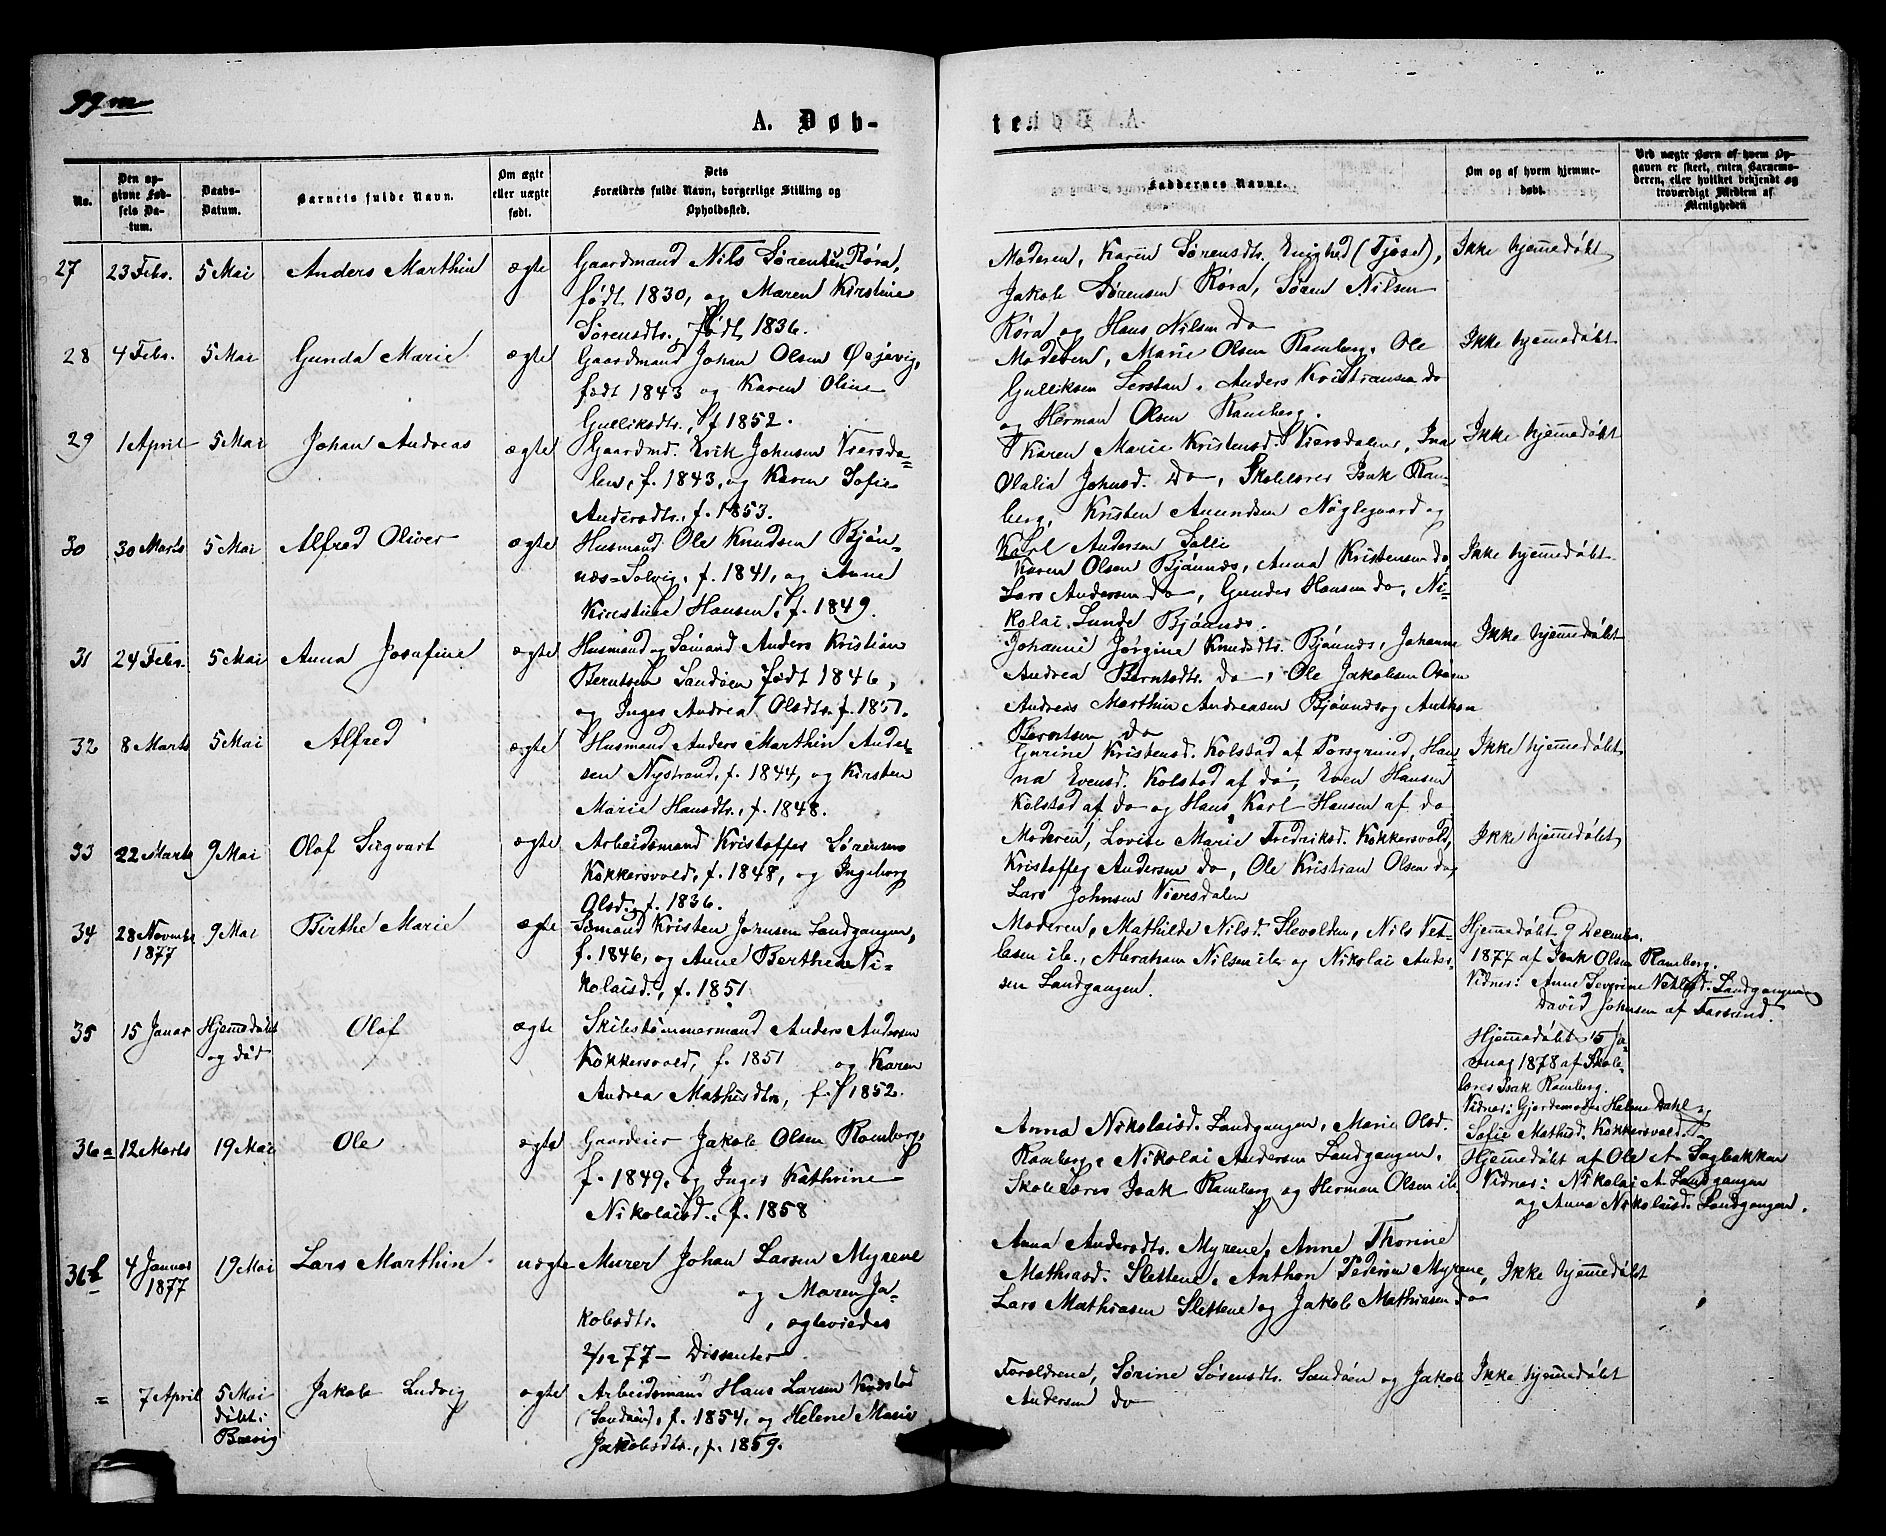 99 m
A. Døb-
te.
No.
Den opgivne Fødsels Datum.
Daabs-Datum.
Barnets fulde Navn.
Om ægte eller uægte født.
Dets Forældres fulde Navn, borgerlige Stilling og Opholdssted.
Faddernes Navne.
Om og af hvem hjemmedøbt.
Ved uægte Børn af hvem Opgaven er skeet, enten Barnemoderen, eller hvilket bekjendt og troværdigt Medlem af Menigheden
27 23 Febr. 5 Mai Anders Marthin ægte Gaardmand Nils Sørensen Røra,
født 1830, og Maren Kirstine
Sørensdtr. født 1836.
Moderen, Karen Sørensdtr. Enighed (Tjøse),
Jakob Sørensen Røra, Søren Nilsen
Røra og Hans Nilsen do
Ikke hjemmedøbt
28 4 Febr. 5 Mai Gunda Marie ægte Gaardmand Johan Olsen Øsjevig,
født 1843 og Karen Oline
Gulliksdtr., f 1852.
Moderen, Marie Olsen Ramberg, Ole
Gulliksen Serstan, Anders Kristiansen do
og Herman Olsen Ramberg.
Ikke hjemmedøbt
29 1 April 5 Mai Johan Andreas ægte Gaardmd. Erik Johnsen Viersda-
len, f. 1843, og Karen Sofie
Andersdtr., f. 1853.
Karen Marie Kristensd. Viersdalen, Ina
Olalia Johnsd. do, Skolelærer Isak Ram-
berg, Kristen Amundsen Nøglegaard og
Karl Andersen Solli
Ikke hjemmedøbt
30 30 Marts 5 Mai Alfred Oliver ægte Husmand Ole Knudsen Bjøn-
næs=Solvig, f. 1841, og Anne
Kirstine Hansen, f. 1849.
Karen Olsen Bjønnæs, Anna Kristensen do
Lars Andersen do, Gunder Hansen do, Ni-
kolai Lunde Bjønnæs.
Ikke hjemmedøbt
31 24 Febr. 5 Mai Anna Josefine ægte Husmand og Sømand Anders Kristian
Berntsen Sandøen født 1846,
og Inger Andrea Olsdtr. f. 1851.
Johanne Jørgine Knudsdtr. Bjønnæs, Johanne
Andrea Berntsdtr. do, Ole Jakobsen
Andreas Marthin Andreasen Bjønnæs og Anthon
Berntsen do
Ikke hjemmedøbt
32 8 Marts 5 Mai Alfred ægte Husmand Anders Marthin Ander-
sen Nystrand, f. 1844, og Kirsten
Marie Hansdtr., f. 1848.
Gurine Kristensd. Kolstad af Porsgrund, Han-
na Evensd. Kolstad af do, Even Hansen
Kolstad af do og Hans Karl Hansen af do
Ikke hjemmedøbt
33 22 Marts 9 Mai Olaf Sigvart ægte Arbeidsmand Kristoffer Sørensen
Kokkersvold, f. 1848, og Ingeborg
Olsd., f. 1836.
Moderen, Lovise Marie Fredriksd. Kokkersvold,
Kristoffer Andersen do, Ole Kristian Olsen do,
Lars Johnsen Viersdalen
Ikke hjemmedøbt
34 28 Novembr 1877 9 Mai Birthe Marie ægte Sømand Kristen Johnsen Landgangen,
f. 1846, og Anne Berthea Ni-
kolaisd., f. 1851.
Moderen, Mathilde Nilsd. Slevolden, Nils Vet-
lesen ib., Abraham Nilsen ib. og Nikolai Ander-
sen Landgangen.
Hjemmedøbt 9 Decembr.
1877 af Isak Olsen Ramberg.
Vidner: Anne Severine Landgangen
David Johnsen af Farsund.
35 15 Januar Hjemmedøbt og død Olaf ægte Skibstømmermand Anders Andersen
Kokkersvold, f. 1851 og Karen
Andrea Mathisdtr., f. 1852.
Hjemmedøbt 15 Ja-
nuar 1878 af Skole-
lærer Isak Ramberg.
Vidner: Gjordemoder Helene Dahl og
Sofie Mathisd. Kokkersvold.
36a 12 Marts 19 Mai Ole ægte Gaardeier Jakob Olsen Ramberg
f. 1849, og Inger Kathrine
Nikolaisd., f. 1858
Anna Nikolaisd. Landgangen, Marie Olsd.
Ramberg, Nikolai Andersen Landgangen,
Skolelærer Isak Ramberg og Herman Olsen ib.
Hjemmedøbt af Ole A. Sagbakken
Vidner: Nikolai A. Landgangen
og Anna Nikolaisd. Landgangen.
36b 4 Januar 1877 19 Mai Lars Marthin uægte Murer Johan Larsen Myrene
og Maren Ja-
kobsdtr. , ægteviedes
2/12 77 - Dissenter.
Anna Andersdtr. Myrene, Anne Thorine
Mathiasd. Slettene, Anthon Pedersen Myrene,
Lars Mathiasen Slettene og Jakob Mathiasen do
Ikke hjemmedøbt
= 7 April 5 Mai døbt i Brevig Jakob Ludvig ægte Arbeidsmand Hans Larsen
(Sandøen), f. 1854, og Helene Marie
Jakobsdtr., f. 1859.
Forældrene, Sørine Sørensdtr. Sandøen og Jakob
Andersen do
Ikke hjemmedøbt